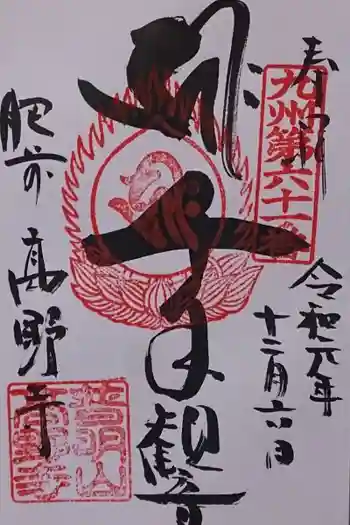 奉拝
九州第六十一番
令和元年
十二月六日
千手観音
肥前
高野寺
普明山
高野寺